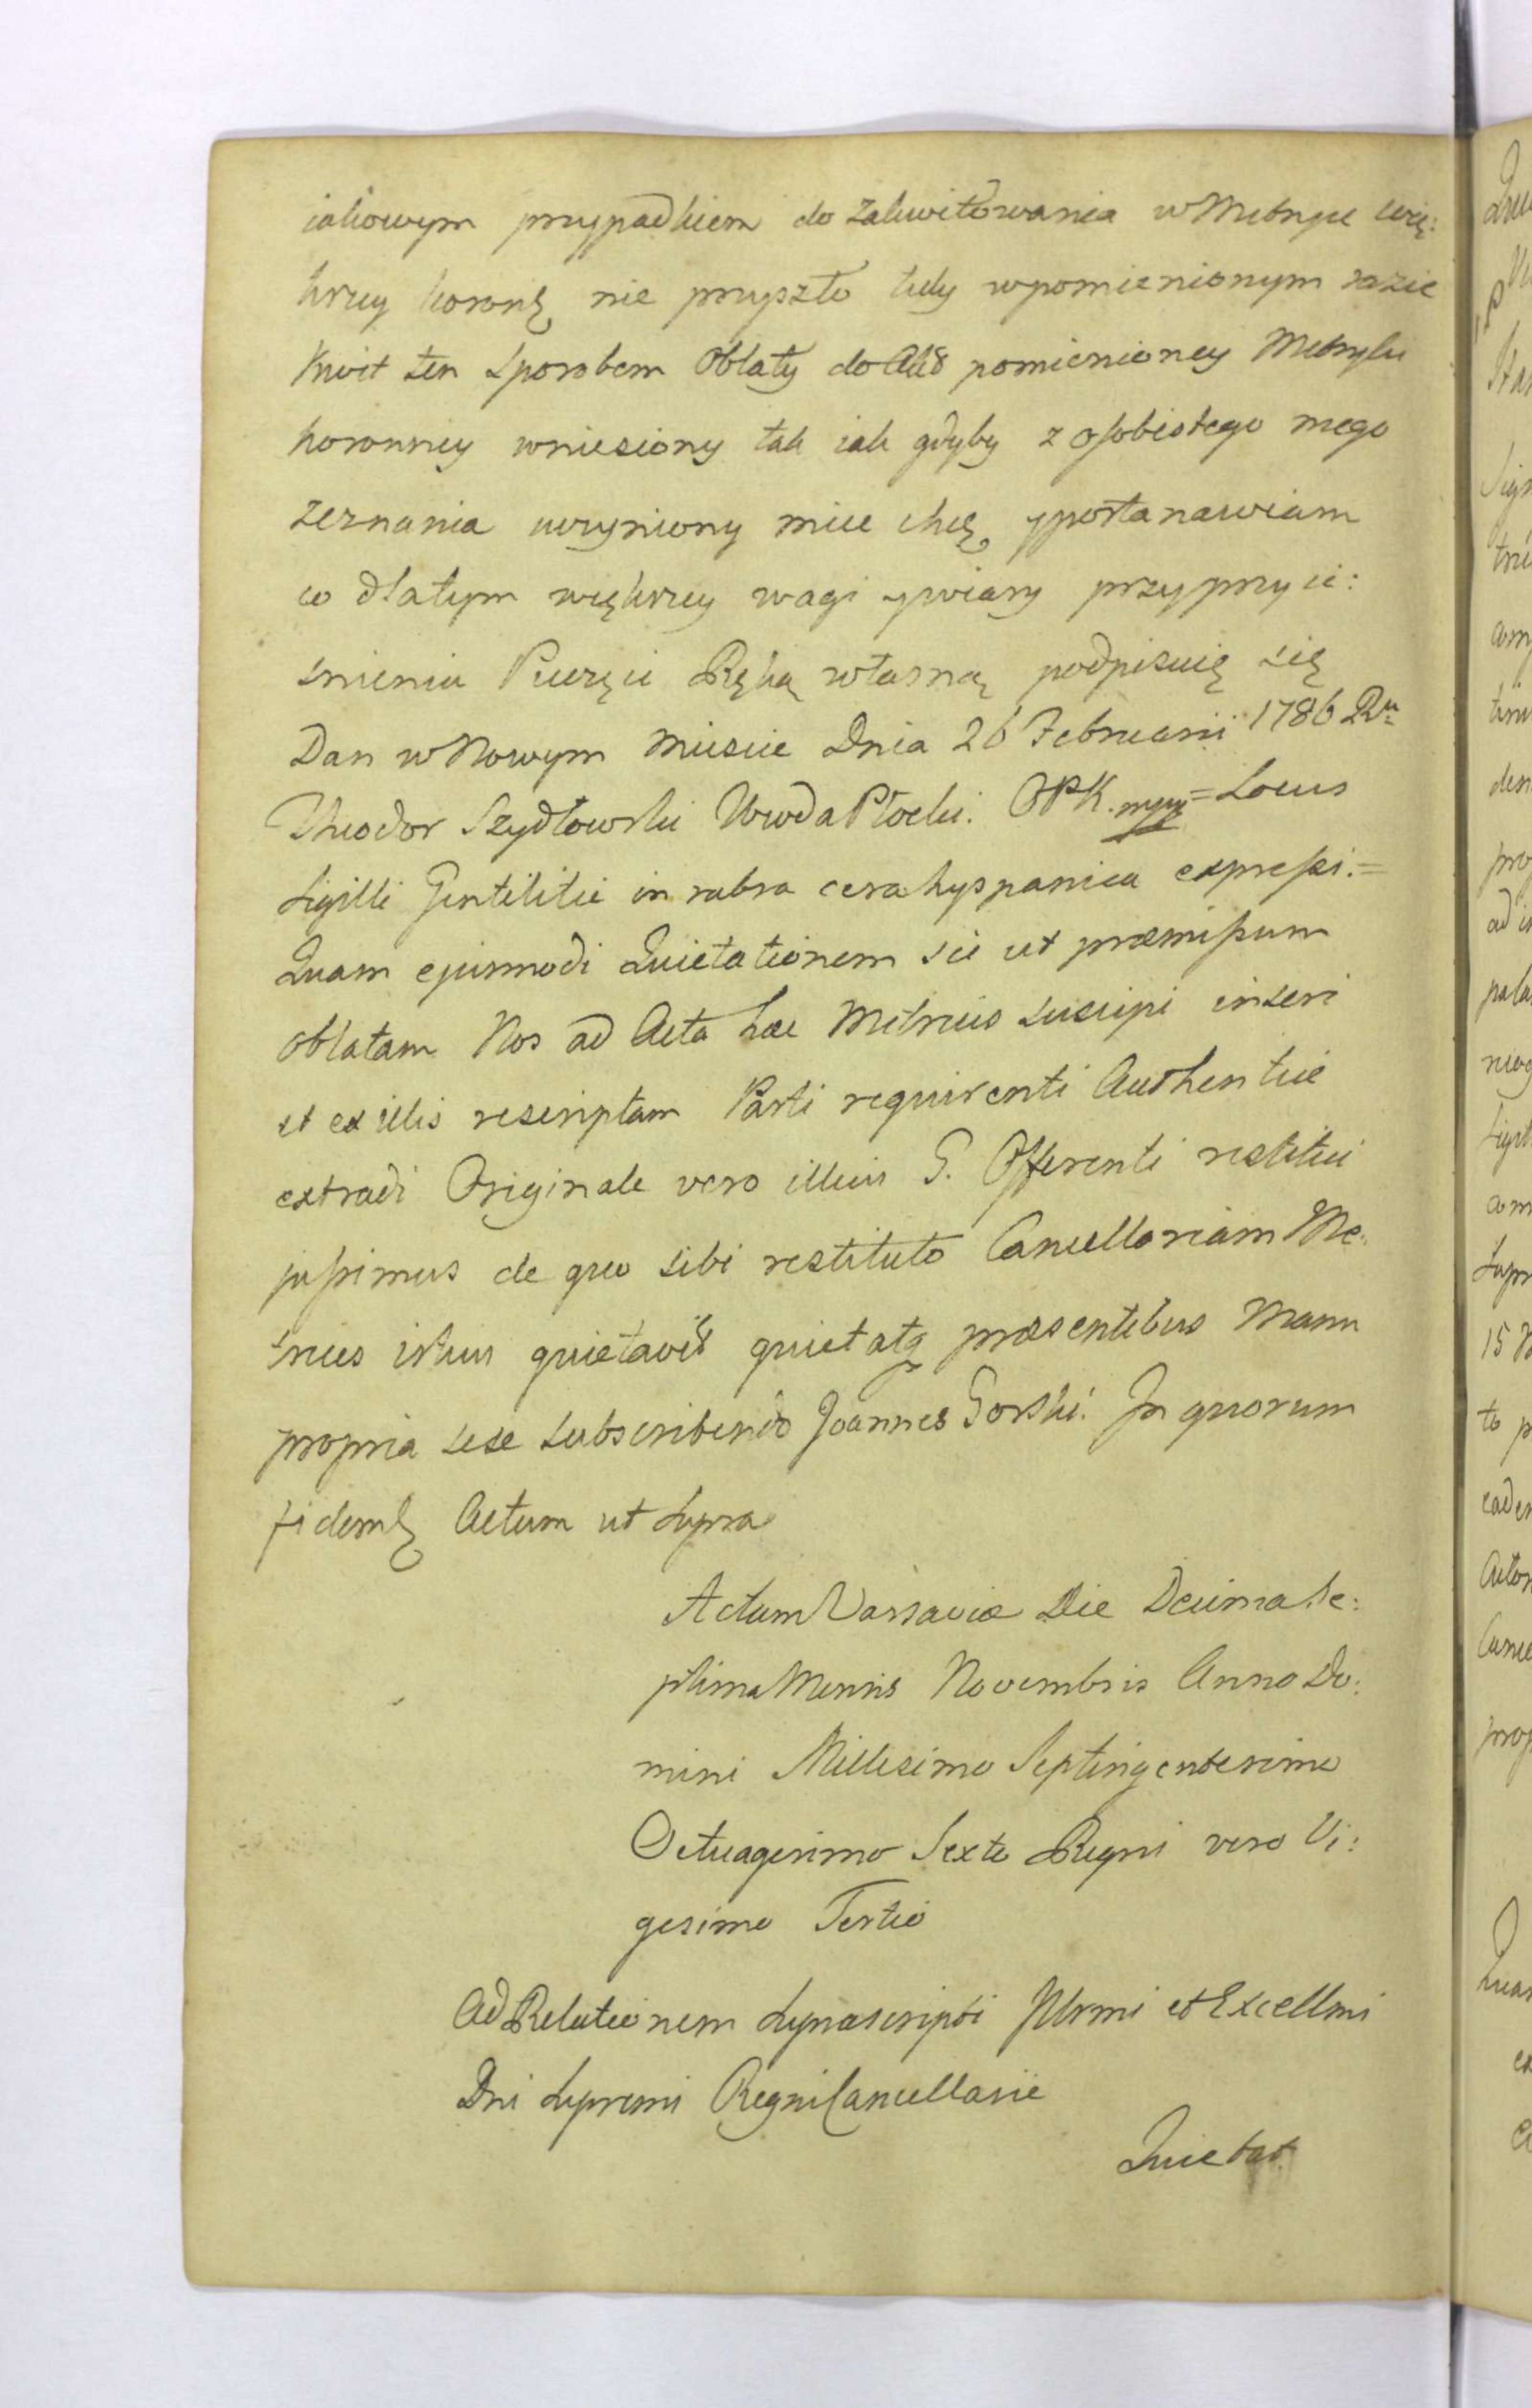 iakowym przypadkiem do zakwitowania w Metryce wię:
kszey koronę nie przyszło tedy wpomienionym razie
kwit ten sposobem Oblaty do Akt pomienioney Metryki
koronney wniesiony tak iak gdyby z osobistego mego
zeznania uczyniony miec chcę ypostanawiam
co dlatym większey wagi ywiary przyprzyci:
snieniu Pieczęci Ręką własną podpisuię się
Dan w Nowym Miescie Dnia 26 Februarii 1786 Ru
Theodor Szydłowski Wwda Płocki. OPK. mpp = Locus
Sigilli Gentilitii in rubra cera hyspanica expressi. =
Quam ejusmodi Quietationem sic ut præmissum
oblatam Nos ad Acta hæc Metrices suscipi inseri
et ex illis rescriptam Parti requirenti Authentice
extradi Originale vero illius G. Offerenti restitui
jussimus de quo sibi restituto Cancellariam Me:
trices istius quietavit quietatq præsentibus Manu
propria sese subscribendo Joannes Gorski. In quorum
fidemq Actum ut supra
Actum Varsaviæ Die Decima Se:
ptima Mensis Novembris Anno Do:
mini Millesimo Septingentesimo
Octuagesimo Sexto Regni vero Vi:
gesimo Tertio
Ad Relationem suprascripti Illrmi et Excellmi
Dni Supremi Regni Cancellarii
Quietat